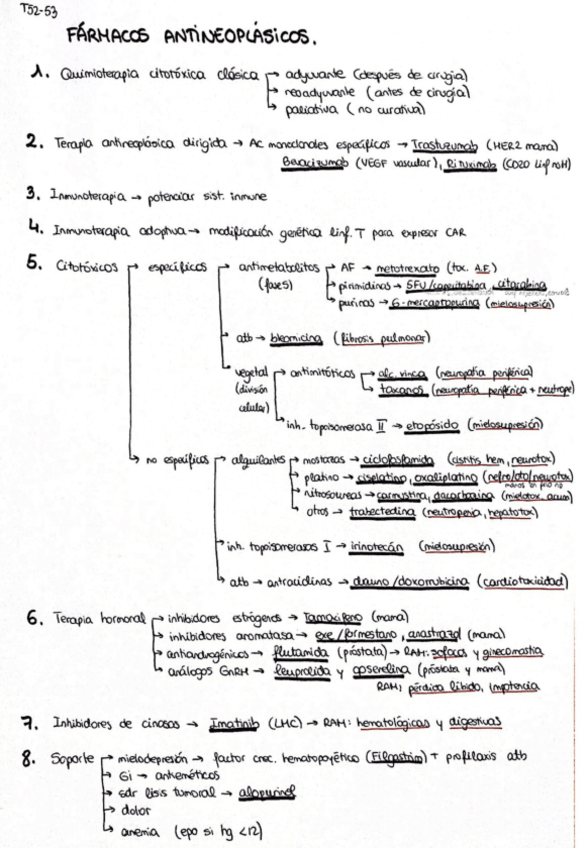 T52-53
FÁRMACOS ANTINEOPLÁSICOS.
1. Quimioterapia citotóxica clásica → adyuvante (después de cirugía)
→ neoadyuvante (antes de cirugía)
→ paliativa (no curativa)
2. Terapia antineoplásica dirigida → Ac monoclonales específicos → Trastuzumab (HER2 mama)
Bevacizumab (VEGF vascular), Rituximab (CD20 linf noH)
3. Inmunoterapia → potenciar sist. inmune
4. Inmunoterapia adoptiva → modificación genética linf. T para expresar CAR
5. Citotóxicos → específicos → antimetabolitos → AF → metotrexato (tox. A.F.)
(fase S) → pirimidinas → 5FU/capecitabina, citarabina
→ purinas → 6-mercaptopurina (mielosupresión)
→ atb → bleomicina (fibrosis pulmonar)
→ vegetal → antimitóticos → alc. vinca (neuropatía periférica)
(división → taxanos (neuropatía periférica + neutrope)
celular)
→ inh. topoisomerasa II → etopósido (mielosupresión)
→ no específicos → alquilantes → mostazas → ciclofosfamida (cistitis hem, neurotox)
→ platino → cisplatino, oxaliplatino (nefro/oto/neurotox)
→ nitrosoureas → carmustina, dacarbacina (mielotox. acum)
→ otros → trabectedina (neutropenia, hepatotox)
→ inh. topoisomerasas I → irinotecán (mielosupresión)
→ atb → antraciclinas → dauno/doxorrubicina (cardiotoxicidad)
6. Terapia hormonal → inhibidores estrógenos → Tamoxifeno (mama)
→ inhibidores aromatasa → exe/formestano, anastrazol (mama)
→ antiandrogénicos → flutamida (próstata) → RAM: sofocos y ginecomastia
→ análogos GnRH → leuprolida y goserelina (próstata y mama)
RAM: pérdida libido, impotencia
7. Inhibidores de cinasas → Imatinib (LMC) → RAM: hematológicas y digestivas
8. Soporte → mielodepresión → factor crec. hematopoyético (Filgastrim) + profilaxis atb
→ Gi → antieméticos
→ sdr lisis tumoral → alopurinol
→ dolor
→ anemia (epo si hg <12)